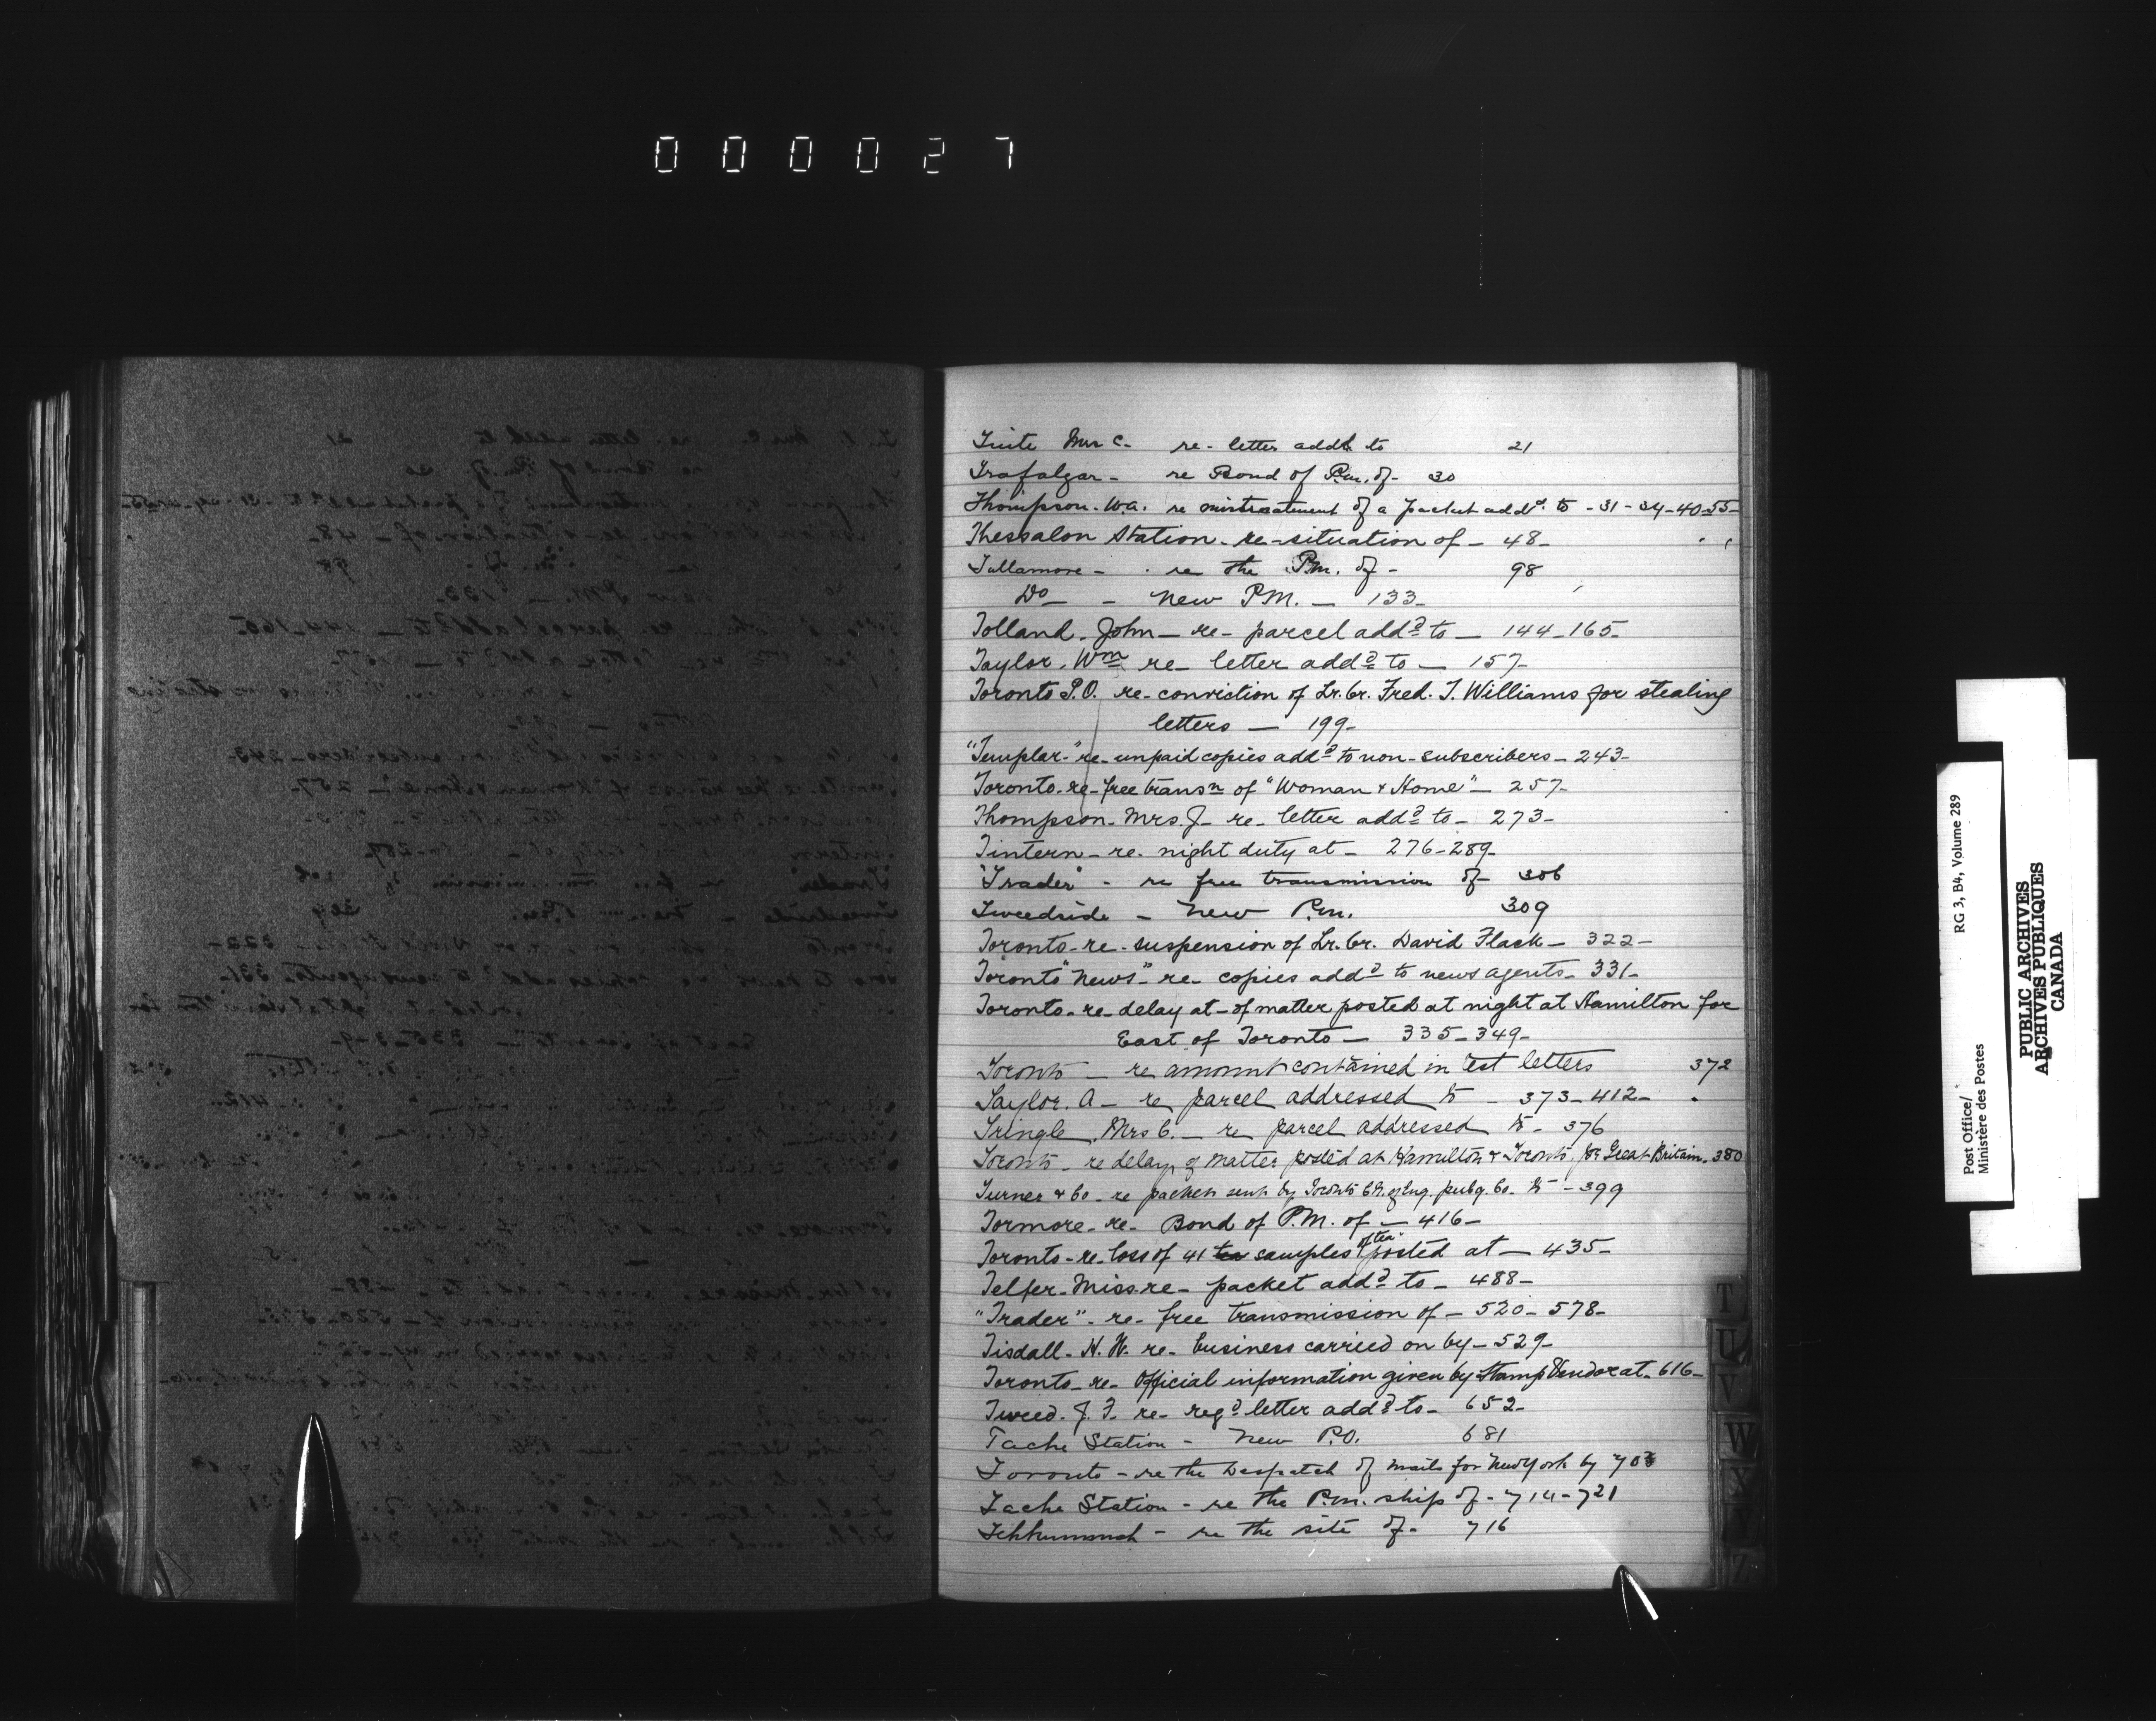 000027
Tuite Mrs C. re- letter addd to 21
Trafalgar - re Bond of P.M. of - 30
Thompson. W.A. re mistreatment of a packet addd. to - 31 - 34 - 40 - 55 -
Thessalon Station - re - situation of - 48 -
Tullamore - re the P.M. of - 98
Do - - New P.M. - 133 -
Tolland. John - re - parcel addd to - 144 - 165 -
Taylor. Wm re - letter addd to - 157 -
Toronto P.O. re - conviction of Lr. Cr. Fred. T. Williams for stealing
letters - 199 -
"Templar" - re - unpaid copies addd to non - subscribers - 243 -
Toronto - re - free transn of "Woman & Home" - 257 -
Thompson - Mrs. J - re - letter addd to - 273 -
Tintern - re - night duty at - 276 - 289 -
"Trader" - re free transmission of - 306
Tweedside - New P.M. 309
Toronto - re - suspension of Lr. Cr. David Flack - 322 -
Toronto "News" - re - copies addd to news agents - 331 -
Toronto - re - delay at - of matter posted at night at Hamilton for
East of Toronto - 335 - 349 -
Toronto - re amount contained in test letters 372
Taylor. A - re parcel addressed to - 373 - 412 -
Tringle, Mrs C. - re parcel addressed to - 376
Toronto - re delay of matter posted at Hamilton & Toronto for Great Britain. 380
Turner & Co - re packet sent by Toronto of Eng. pubg. Co. to - 399
Tormore - re - Bond of P.M. of - 416 -
Toronto - re - loss of 41 tea samples of tea posted at - 435 -
Telfer - Miss - re - packet addd to - 488 -
"Trader" - re - free transmission of - 520 - 578 -
Tisdall - H. W. re - business carried on by - 529 -
Toronto - re - Official information given by Stamp Vendor at - 616 -
Tweed. J. F. re - regd letter addd to - 652 -
Tache Station - New P.O. 681
Toronto - re the Despatch of mails for New York by 703
Tache Station - re the P.M. ship of - 714 - 721
re the site of - 716
T
U
V
W
X
Y
Z
RG 3, B4, Volume 289
Post Office/
Ministère des Postes
PUBLIC ARCHIVES
ARCHIVES PUBLIQUES
CANADA